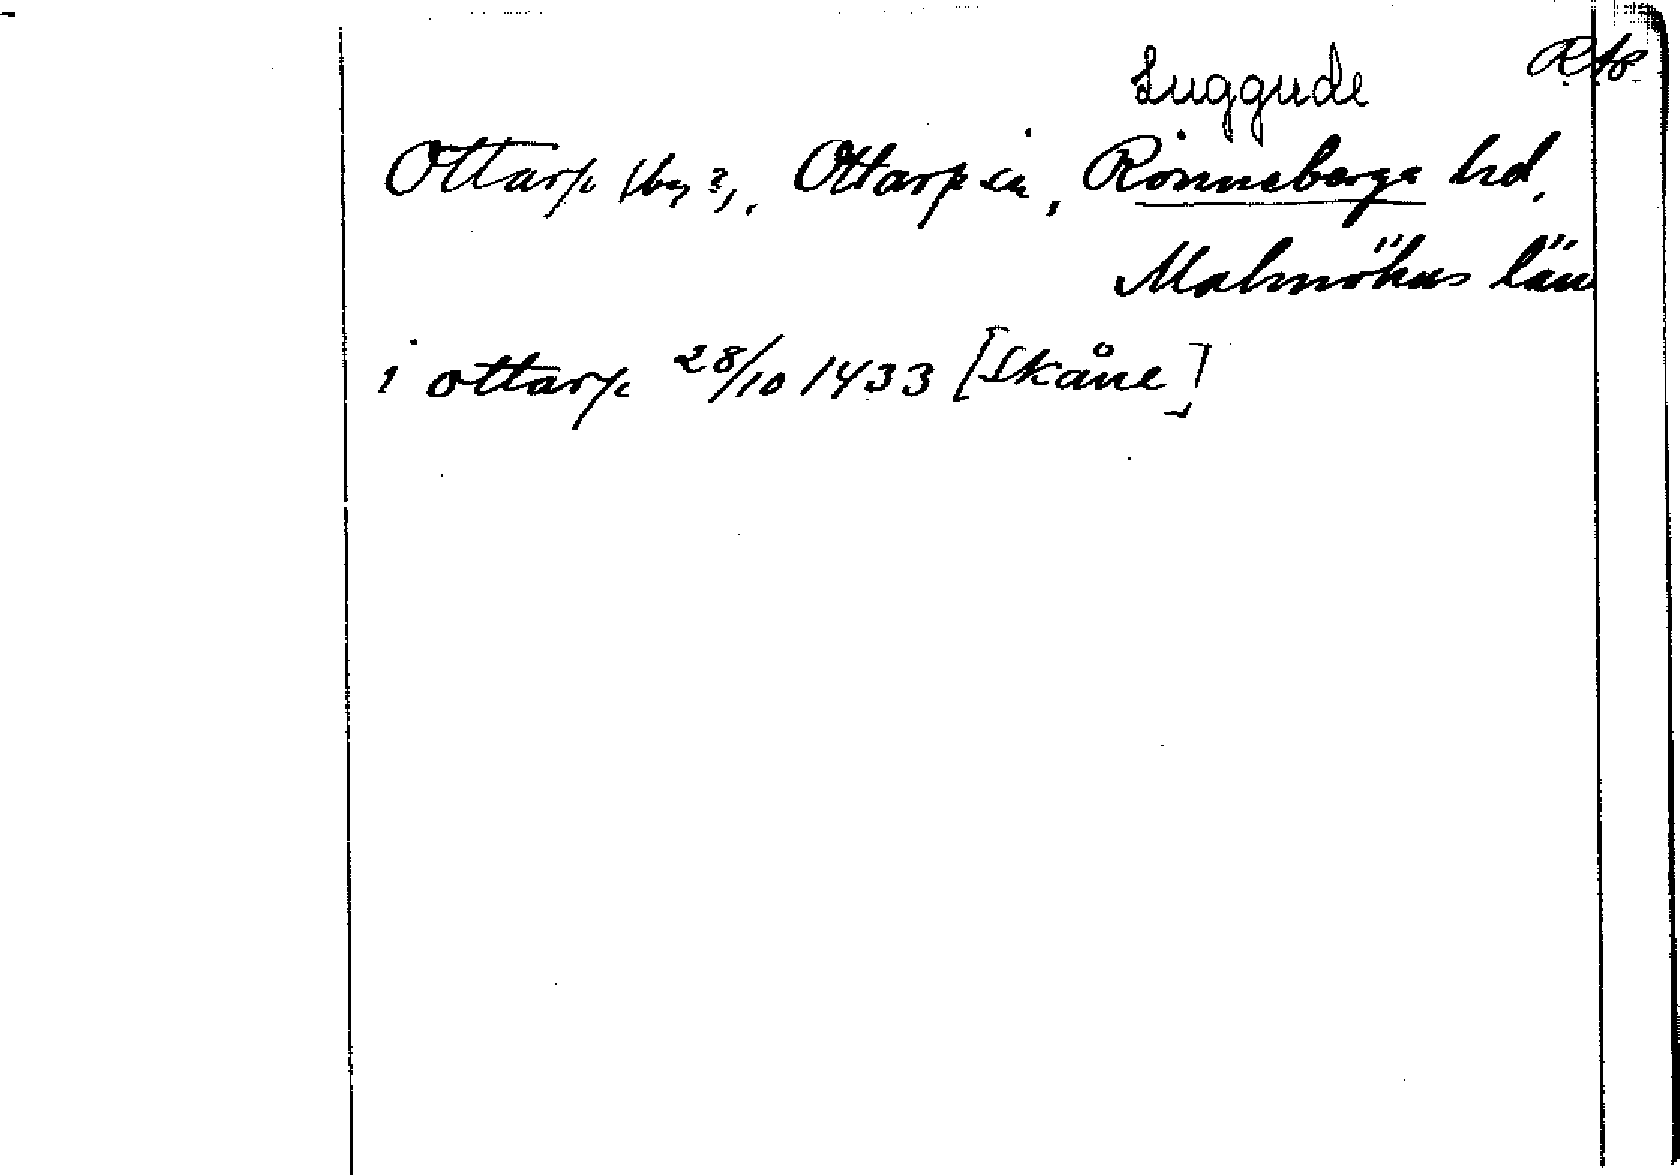 Rap
Luggude
Ottarp (by?), Ottarp sn, Rönneberga hd,
Malmöhus län
i ottarp 28/10 1433 [Skåne]